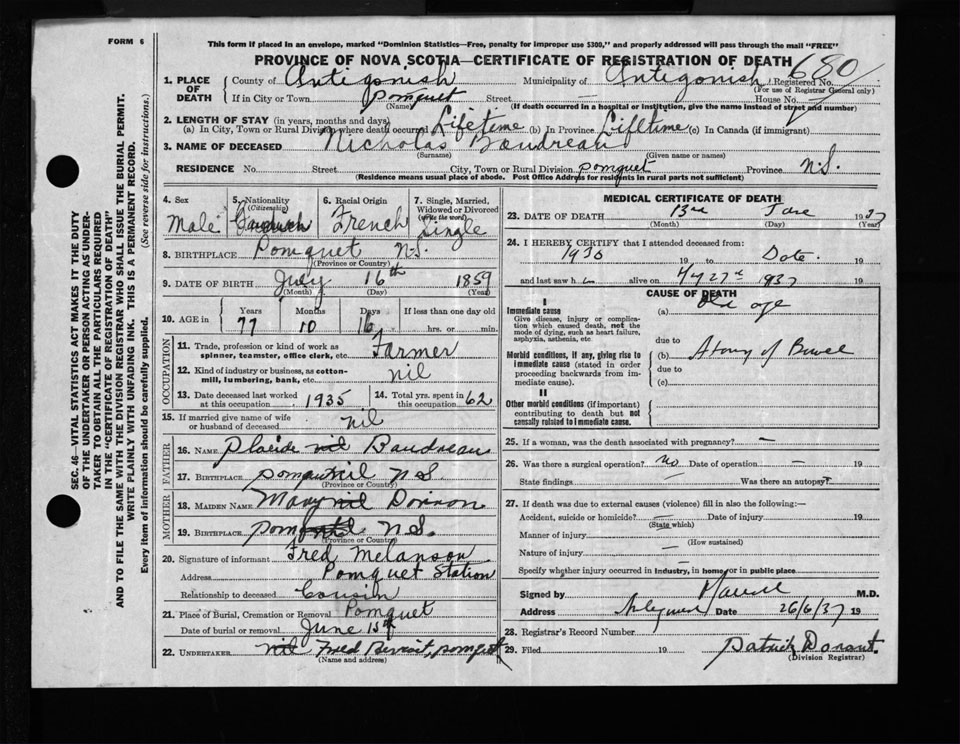 FORM 6
This form if placed in an envelope, marked "Dominion Statistics—Free, penalty for improper use $300," and properly addressed will pass through the mail "FREE"
PROVINCE OF NOVA SCOTIA—CERTIFICATE OF REGISTRATION OF DEATH
680
1. PLACE OF DEATH County of Antigonish Municipality of Antigonish Registered No.
(For use of Registrar General only)
If in City or Town Pomquet Street — House No.
(Name) (If death occurred in a hospital or institution, give the name instead of street and number)
2. LENGTH OF STAY (in years, months and days)
(a) In City, Town or Rural Division where death occurred Lifetime (b) In Province Lifetime (c) In Canada (if immigrant)
3. NAME OF DECEASED Nicholas Baudreau
(Surname) (Given name or names)
RESIDENCE No. Street City, Town or Rural Division Pomquet Province N.S.
(Residence means usual place of abode. Post Office Address for residents in rural parts not sufficient)
4. Sex Male
5. Nationality (Citizenship)
6. Racial Origin French
7. Single, Married, Widowed or Divorced (Write the word) Single
8. BIRTHPLACE Pomquet N.S.
(Province or Country)
9. DATE OF BIRTH July 16th 1859
(Month) (Day) (Year)
10. AGE in Years Months Days If less than one day
77 10 16 hrs. or min.
OCCUPATION
11. Trade, profession or kind of work as spinner, teamster, office clerk, etc. Farmer
12. Kind of industry or business, as cotton-mill, lumbering, bank, etc. nil
13. Date deceased last worked at this occupation 1935 14. Total yrs. spent in this occupation 62
15. If married give name of wife or husband of deceased nil
FATHER
16. NAME Placide nil Baudreau
17. BIRTHPLACE Pomquet nil N S
(Province or Country)
MOTHER
18. MAIDEN NAME Mary nil
19. BIRTHPLACE N S.
(Province or Country)
20. Signature of informant Fred Melanson
Address Pomquet Station
Relationship to deceased Cousin
21. Place of Burial, Cremation or Removal Pomquet
Date of burial or removal June 15th
22. UNDERTAKER nil Fred Pomquet
(Name and address)
MEDICAL CERTIFICATE OF DEATH
23. DATE OF DEATH 1937
(Month) (Day) (Year)
24. I HEREBY CERTIFY that I attended deceased from:
1930 19 to Date. 19
and last saw h alive on 1937
CAUSE OF DEATH
I
Immediate cause
Give disease, injury or complication which caused death, not the mode of dying, such as heart failure, asphyxia, asthenia, etc.
(a) Old age
due to
Morbid conditions, if any, giving rise to immediate cause (stated in order proceeding backwards from immediate cause).
(b) Atony of Bowel
due to
(c)
II
Other morbid conditions (if important) contributing to death but not causally related to immediate cause.
25. If a woman, was the death associated with pregnancy? —
26. Was there a surgical operation? no Date of operation — 19
State findings — Was there an autopsy?
27. If death was due to external causes (violence) fill in also the following:—
Accident, suicide or homicide? — Date of injury 19
(State which)
Manner of injury —
(How sustained)
Nature of injury —
Specify whether injury occurred in industry, in home, or in public place
Signed by M.D.
Address Date 26/6/37 19
28. Registrar's Record Number
29. Filed 19 Patrick
(Division Registrar)
SEC. 46—VITAL STATISTICS ACT MAKES IT THE DUTY
OF THE UNDERTAKER OR PERSON ACTING AS UNDER-
TAKER TO OBTAIN ALL THE PARTICULARS REQUIRED
IN THE "CERTIFICATE OF REGISTRATION OF DEATH"
AND TO FILE THE SAME WITH THE DIVISION REGISTRAR WHO SHALL ISSUE THE BURIAL PERMIT.
WRITE PLAINLY WITH UNFADING INK. THIS IS A PERMANENT RECORD.
Every item of information should be carefully supplied. (See reverse side for instructions.)